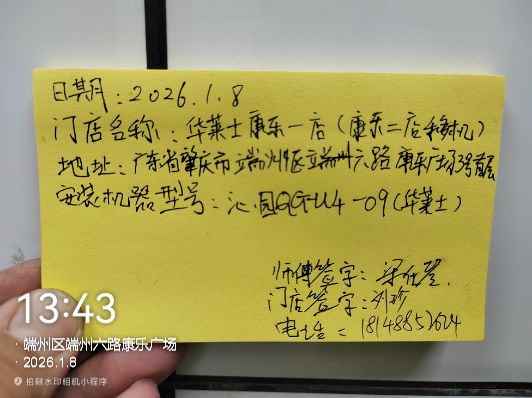 日其月：2026.1.8
门店名称：华莱士康乐一店（康乐二店移机）
地址：广东省肇庆市端州区端州六路康乐广场3号首层
安装机器型号：沁园QG-U4-09（华莱士）
师傅签字：梁
门店签字：刘珍
电话：18148852624
13:43
· 端州区端州六路康乐广场
· 2026.1.8
拍刻水印相机小程序